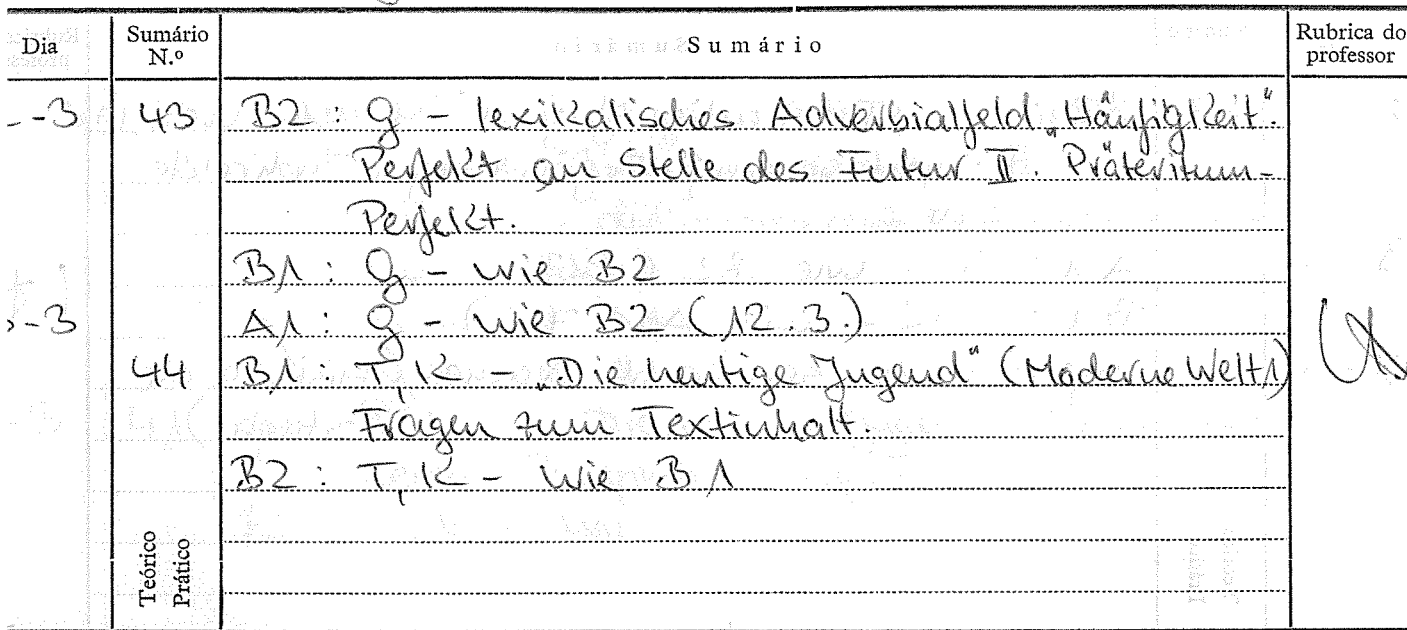 Dia Sumário N.º Sumário Rubrica do professor
-3 43 B2 : G - lexikalisches Adverbialfeld „Häufigkeit".
Perfekt an Stelle des Futur II. Präteritum-
Perfekt.
B1 : G - wie B2
-3 A1 : G - wie B2 (12.3.)
44 B1 : T, K - „Die heutige Jugend" (Moderne Welt 1)
Fragen zum Textinhalt.
B2 : T, K - wie B1
Teórico
Prático